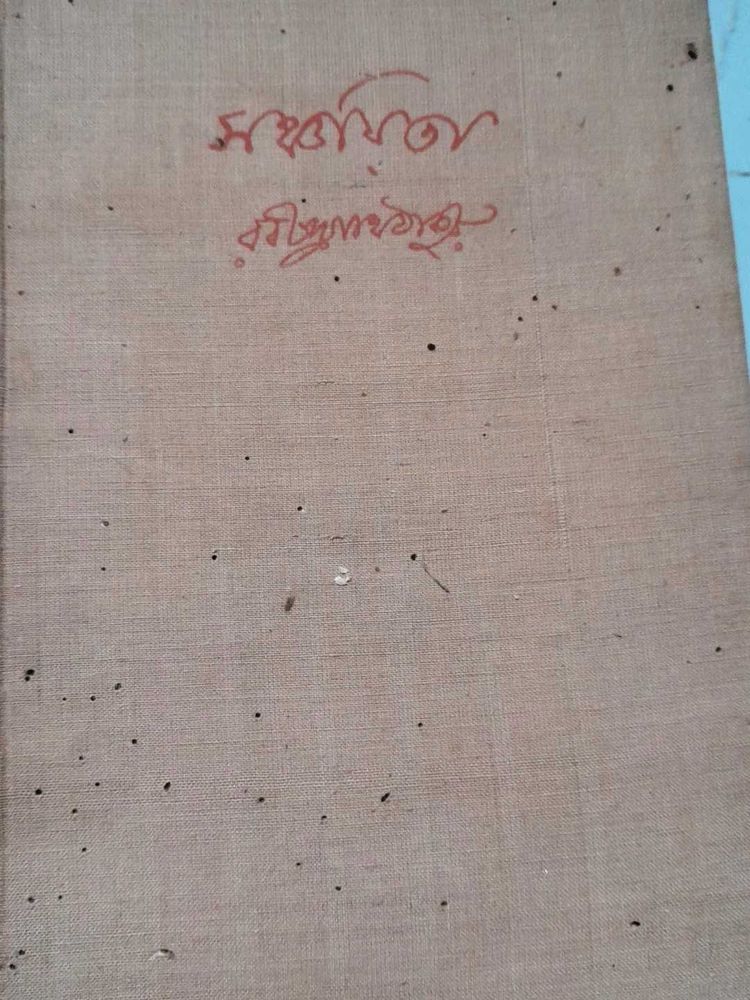 সঞ্চয়িতা
রবীন্দ্রনাথ ঠাকুর